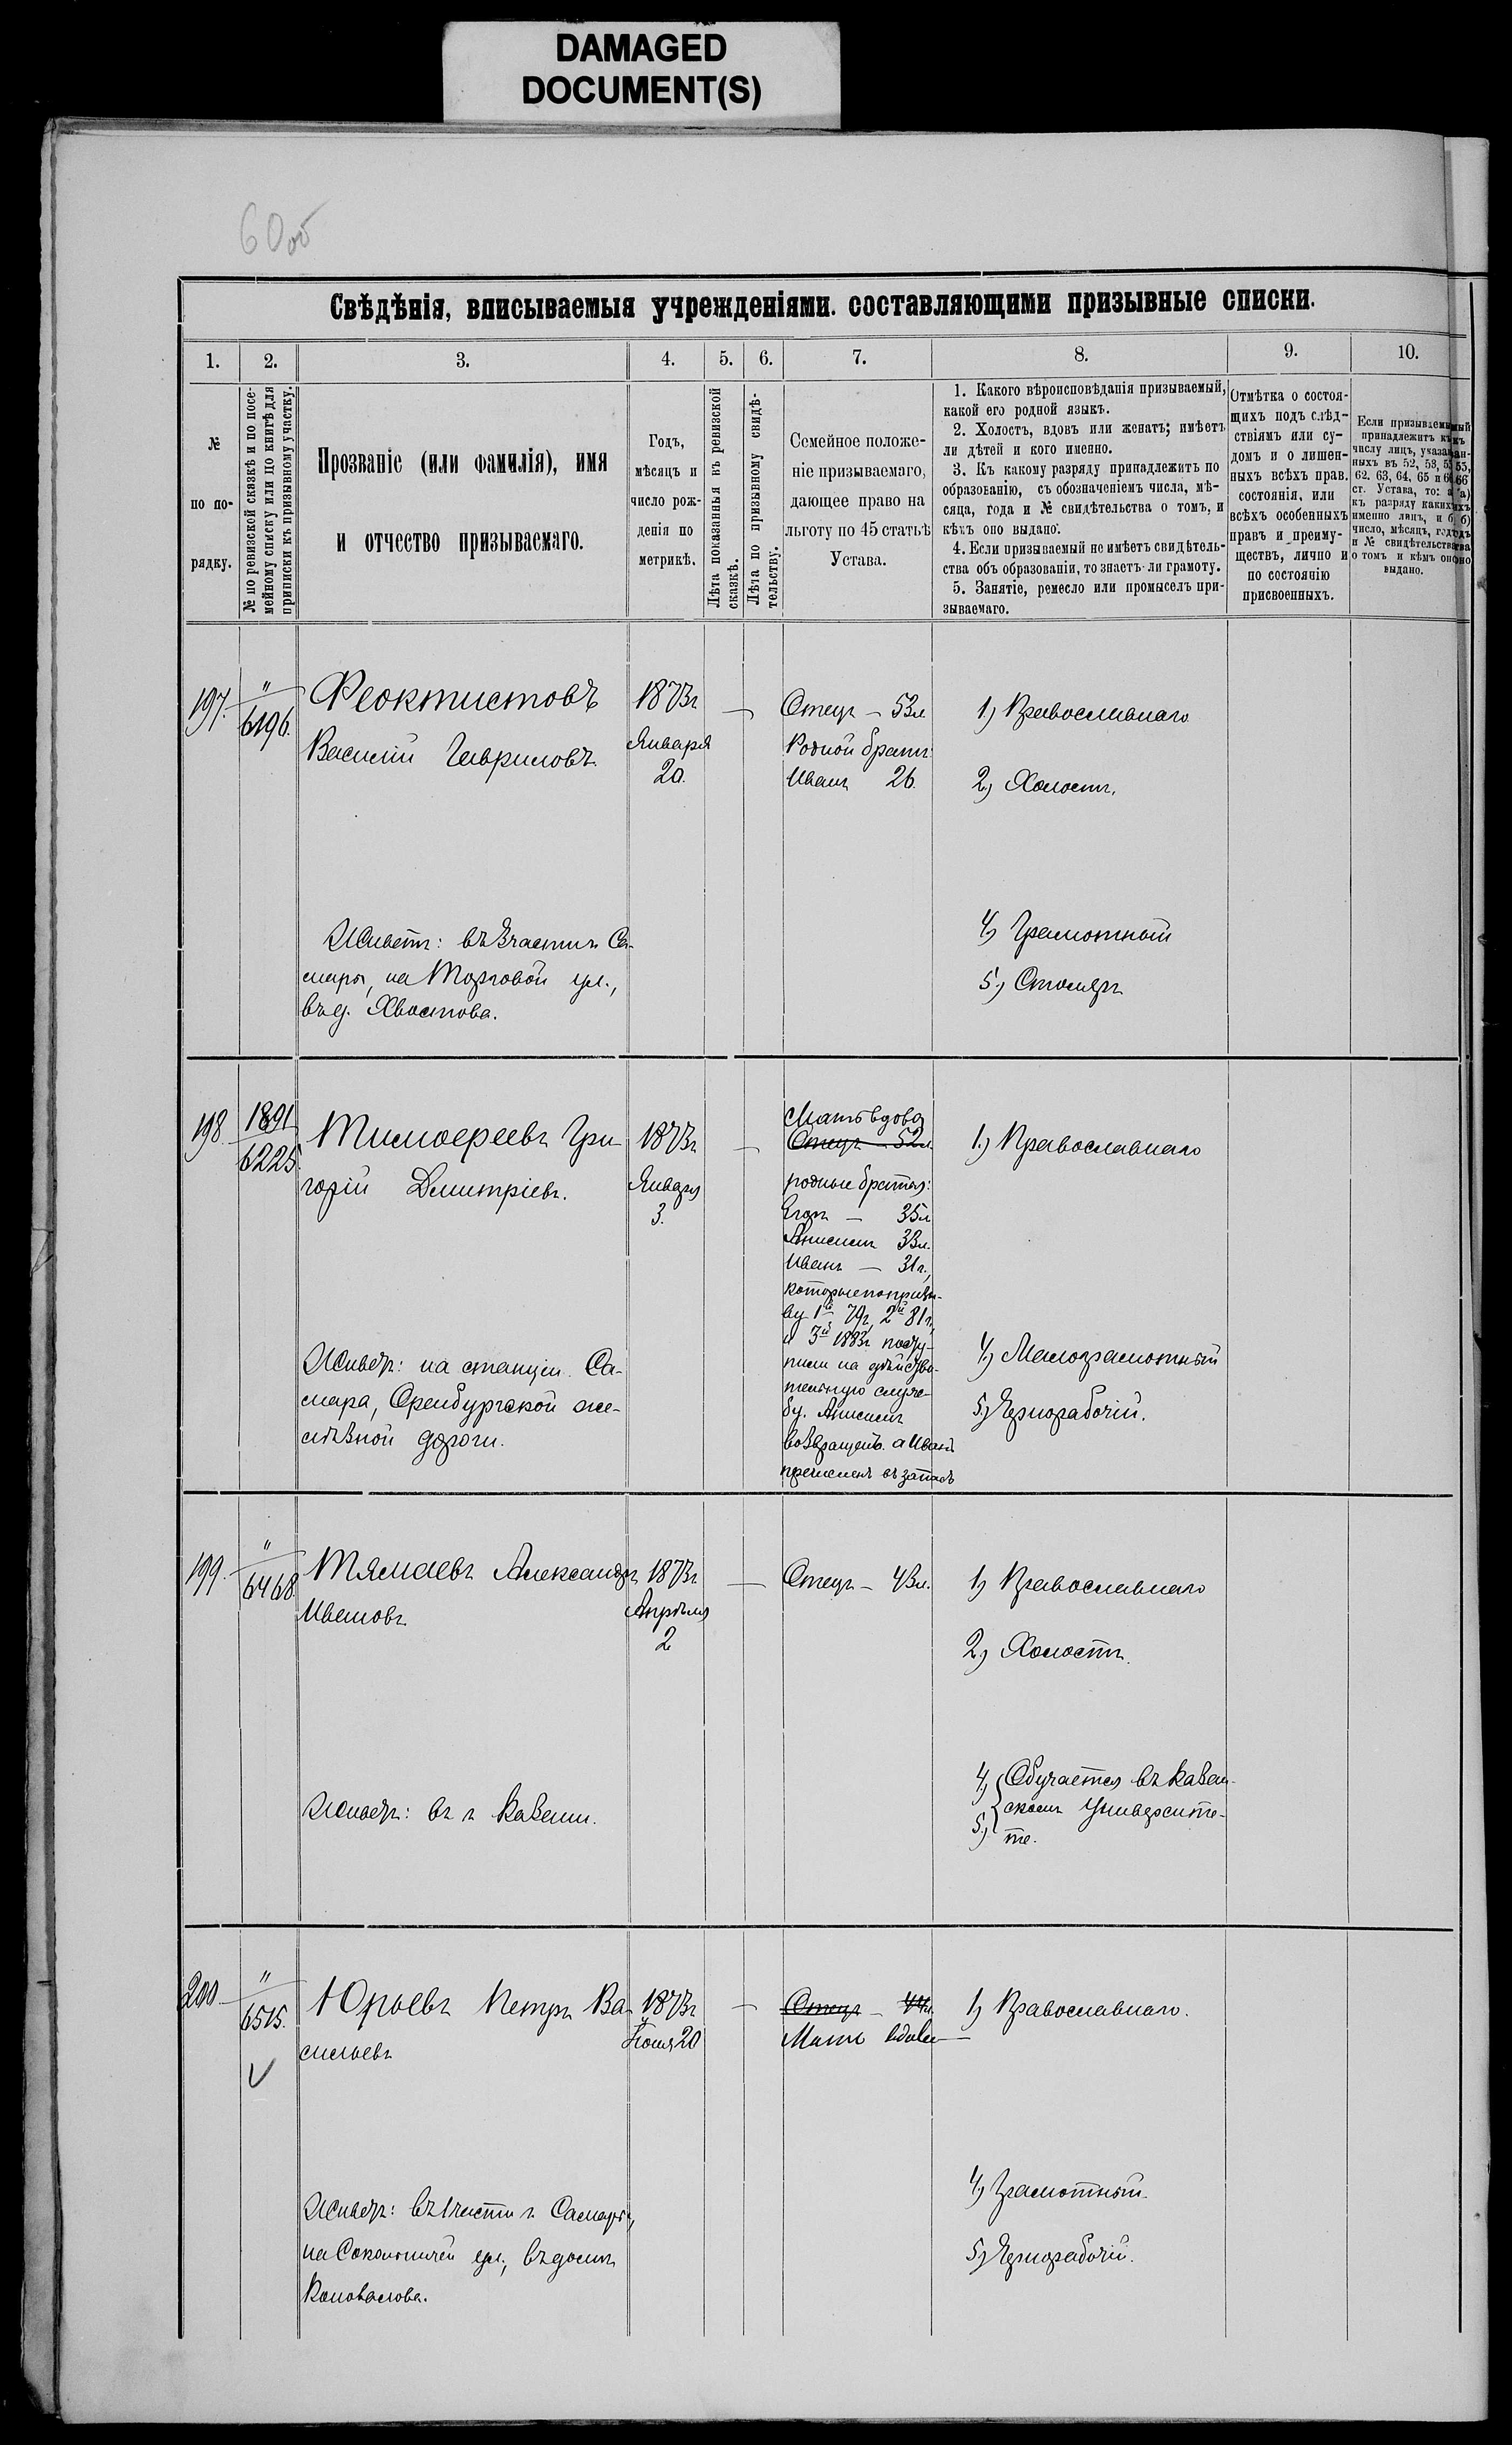 DAMAGED
DOCUMENT(S)
60об
Свѣдѣнія, вписываемыя учрежденіями. составляющими призывные списки.
1.
2.
3.
4.
5.
6.
7.
8.
9.
10.
№
по по-
рядку.
№ по ревизской сказкѣ и по посе-
мейному списку или по книгѣ для
приписки къ призывному участку.
Прозваніе (или фамилія), имя
и отчество призываемаго.
Годъ,
мѣсяцъ и
число рож-
денія по
метрикѣ.
Лѣта показанныя въ ревизской
сказкѣ.
Лѣта по призывному свидѣ-
тельству.
Семейное положе-
ніе призываемаго,
дающее право на
льготу по 45 статьѣ
Устава.
1. Какого вѣроисповѣданія призываемый,
какой его родной языкъ.
2. Холостъ, вдовъ или женатъ; имѣетъ
ли дѣтей и кого именно.
3. Къ какому разряду принадлежитъ по
образованію, съ обозначеніемъ числа, мѣ-
сяца, года и № свидѣтельства о томъ, и
кѣмъ оно выдано.
4. Если призываемый не имѣетъ свидѣтель-
ства объ образованіи, то знаетъ-ли грамоту.
5. Занятіе, ремесло или промыселъ при-
зываемаго.
Отмѣтка о состоя-
щихъ подъ слѣд-
ствіямъ или су-
домъ и о лишен-
ныхъ всѣхъ прав.
состоянія, или
всѣхъ особенныхъ
правъ и преиму-
ществъ, лично и
по состоянію
присвоенныхъ.
Если призываемый
принадлежитъ къ
числу лицъ, указан-
ныхъ въ 52, 53, 55,
62. 63, 64, 65 и 66
ст. Устава, то: а)
къ разряду какихъ
именно лицъ, и б)
число, мѣсяцъ, годъ
и № свидѣтельства
о томъ и кѣмъ оно
выдано.
197.
"
6196.
Феоктистовъ
Василій Гавриловъ.
1873г
Января
20.
—
Отецъ — 53л
Родной братъ
Иванъ 26.
1) Православнаго
2) Холостъ.
4) Грамотный
5) Столяръ
Живетъ: въ 3 части г. Са-
мары, на Торговой ул.,
въ д. Хвостова.
198
1891
6225.
Тимофеевъ Гри
горій Дмитріевъ.
1873г
Января
3.
—
Мать вдова
Отецъ — 52л
родные братья:
Егоръ — 35л
Анисимъ 33л.
Иванъ — 31г.,
которые по призы-
ву 1й 79г, 2й 81г,
и 3й 1883г посту-
пили на дѣйстви-
тельную служ-
бу. Анисимъ
возвращенъ. а Иванъ
зачисленъ въ запасъ
1) Православнаго
4) Малограмотный
5) Чернорабочій.
Живетъ: на станціи Са-
мара, Оренбургской же-
лѣзной дороги.
199.
"
6468
Тямаевъ Александръ
Ивановъ
1873г
Апрѣля
2
—
Отецъ — 43л.
1) Православнаго
2) Холостъ.
4) Обучается въ Казан-
скомъ Университе-
5) те.
Живетъ: въ г. Казани.
200
"
6515.
Юрьевъ Петръ Ва-
сильевъ
1873г
Іюня 20
—
Отецъ — 44л.
Мать вдова —
1) Православнаго.
4) Грамотный.
5) Чернорабочій.
Живетъ: въ 1 части г. Самары,
на Сокольничей ул., въ домѣ
Коновалова.